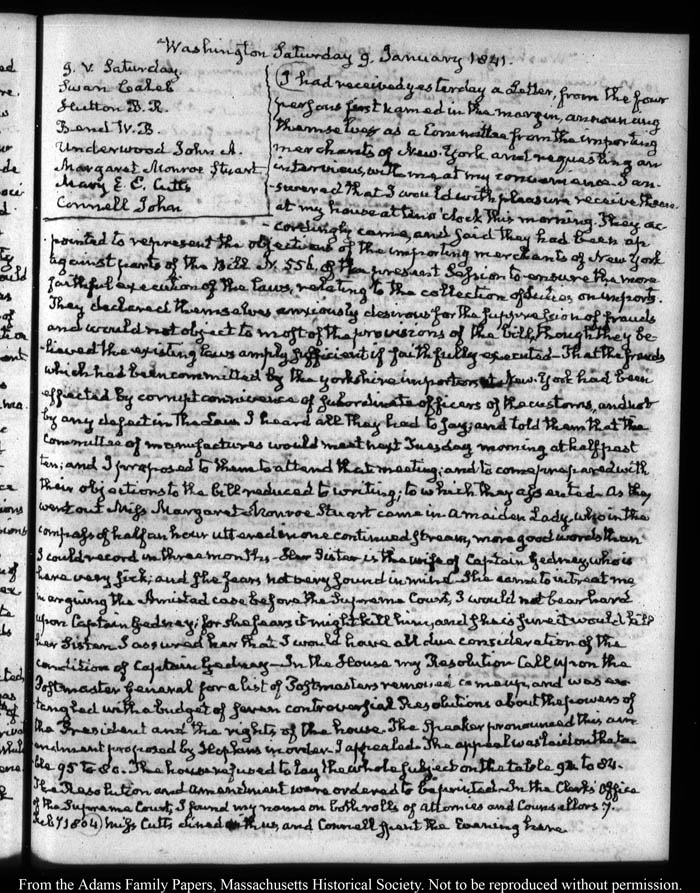 Washington Saturday 9. January 1841.
9. V. Saturday.
Swan Caleb
Hutton B. R.
Bend W. B.
Underwood John A.
Margaret Monroe Stuart
Mary E. E. Cutts
Connell John
I had received yesterday a Letter, from the four
persons first named in the margin, announcing
themselves as a Committee from the importing
merchants of New-York and requesting an
interview with me at my convenience. I an-
swered that I would with pleasure receive them
at my house at ten o'clock this morning. They ac-
cordingly came, and said they had been ap
pointed to represent the objections of the importing merchants of New York
against parts of the Bill N. 556. of the present Session to ensure the more
faithful execution of the laws, relating to the collection of duties on imports.
They declared themselves anxiously desirous for the suppression of frauds
and would not object to most of the provisions of the bill, though they be-
lieved the existing laws amply sufficient if faithfully executed—That the frauds
which had been committed by the Yorkshire importers at New-York had been
effected by corrupt connivance of subordinate officers of the customs, and not
by any defect in the Law. I heard all they had to say; and told them that the
Committee of manufactures would meet next Tuesday morning at half past
ten; and I proposed to them to attend that meeting; and to come prepared with
their objections to the bill reduced to writing; to which they assented. As they
went out Miss Margaret Monroe Stuart came in a maiden Lady, who in the
compass of half an hour uttered in one continued stream, more good words than
I could record in three months—Her Sister is the wife of Captain Gedney, who is
here very sick; and she fears not very sound in mind—She came to intreat me
in arguing the Amistad case before the Supreme Court, I would not bear hard
upon Captain Gedney; for she fears it might kill him, and she is sure it would kill
her Sister. I assured her that I would have all due consideration of the
condition of Captain Gedney—In the House my Resolution Call upon the
Postmaster General for a list of Postmasters removed came up, and was en-
tangled with a budget of seven controversial Resolutions about the powers of
the President and the rights of the house. The Speaker pronounced this am-
endment proposed by in order. I appealed. The appeal was laid on the ta-
ble 95 to 80. The house refused to lay the whole subject on the table 92 to 84.
The Resolution and Amendment were ordered to be printed—In the Clerk's Office
of the Supreme Court, I found my name on both rolls of attornies and Counsellors 7.
Feby 1804) Miss Cutts dined with us, and Connell spent the Evening here.
From the Adams Family Papers, Massachusetts Historical Society. Not to be reproduced without permission